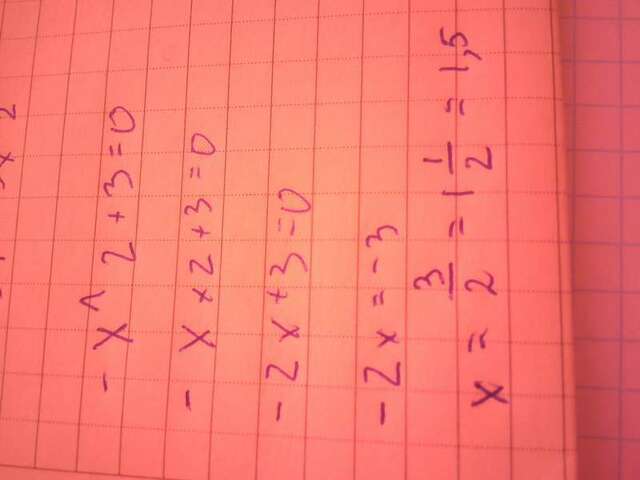 - x^2+3=0
- x x 2+3=0
- 2x+3=0
- 2x=-3
x = 3/2 = 1 1/2 = 1,5